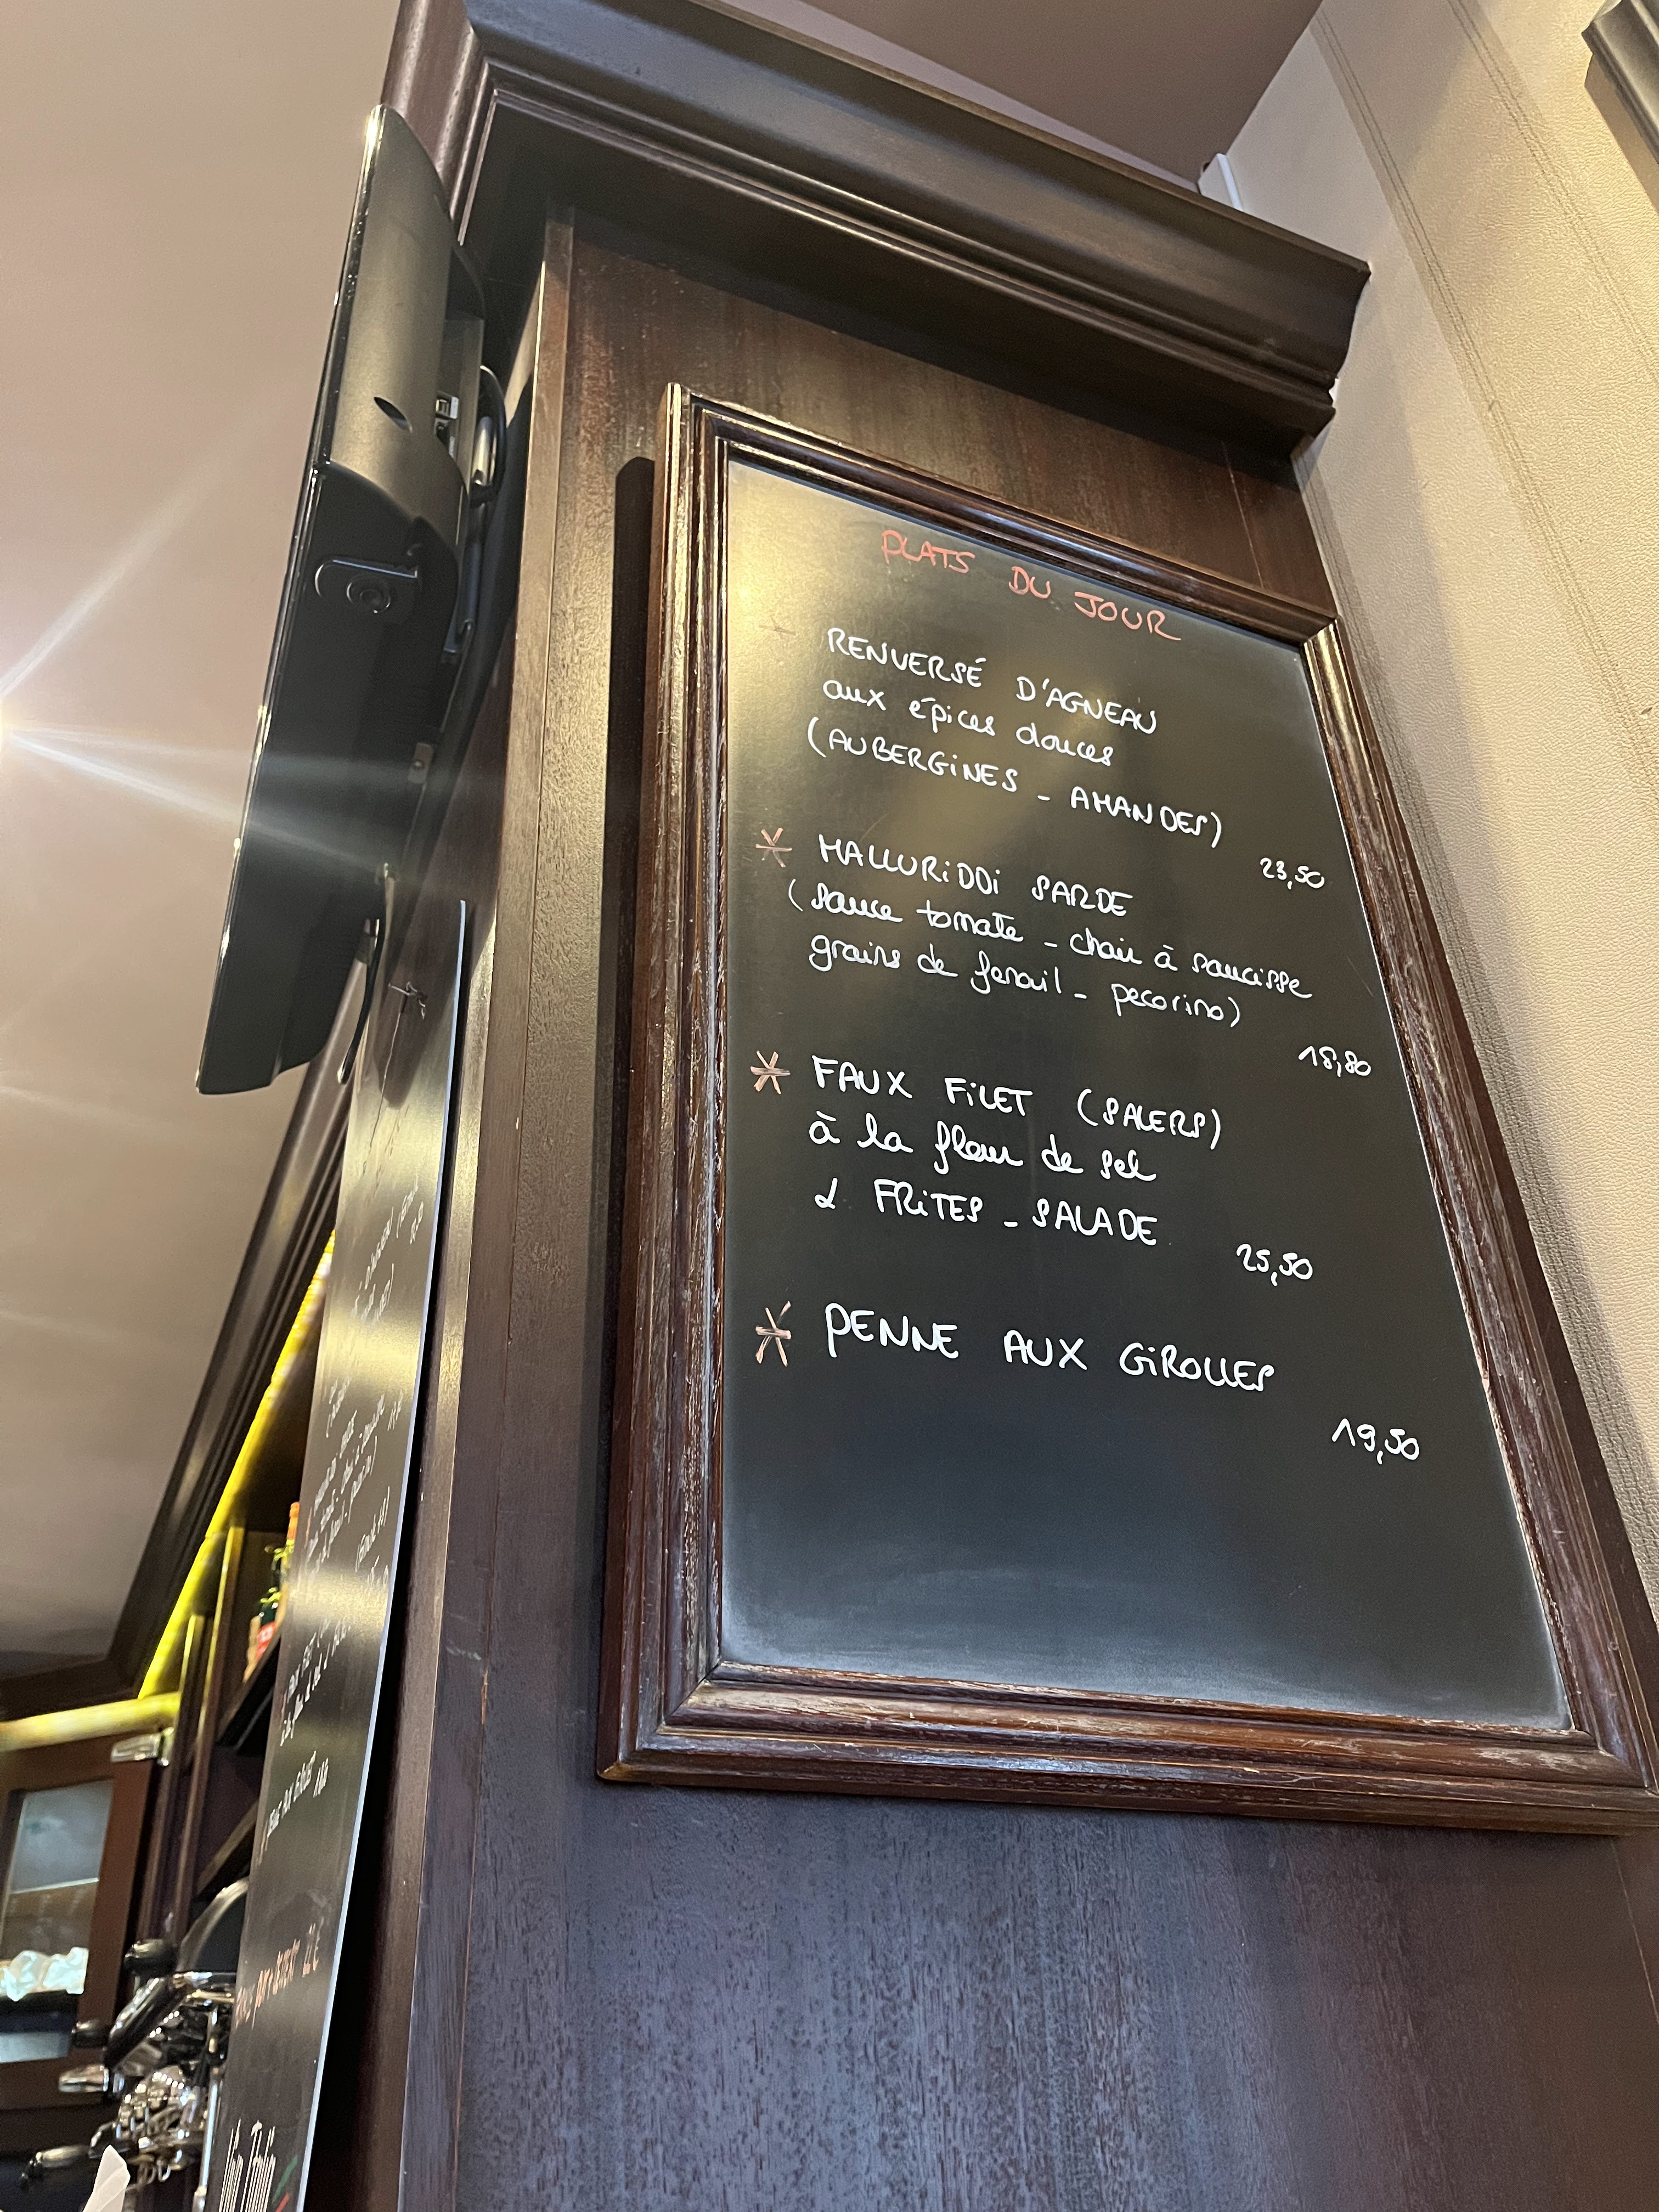 PLATS DU JOUR
RENVERSÉ D'AGNEAU
aux épices douces
(AUBERGINES - AMANDES)
23,50
* MALLURiDDi SARDE
(sauce tomate - chair à saucisse
grains de fenouil - pecorino)
18,80
* FAUX FiLET (SALERS)
à la fleur de sel
& FRiTES - SALADE
25,50
* PENNE AUX GiROLLES
19,50